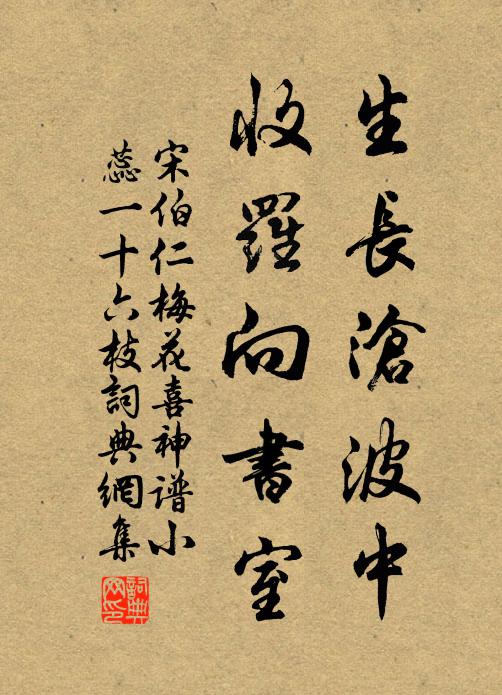 生長滄波中
收羅向書室
宋伯仁梅花喜神譜小
蕊一十六枝詞典網集
詞典網印